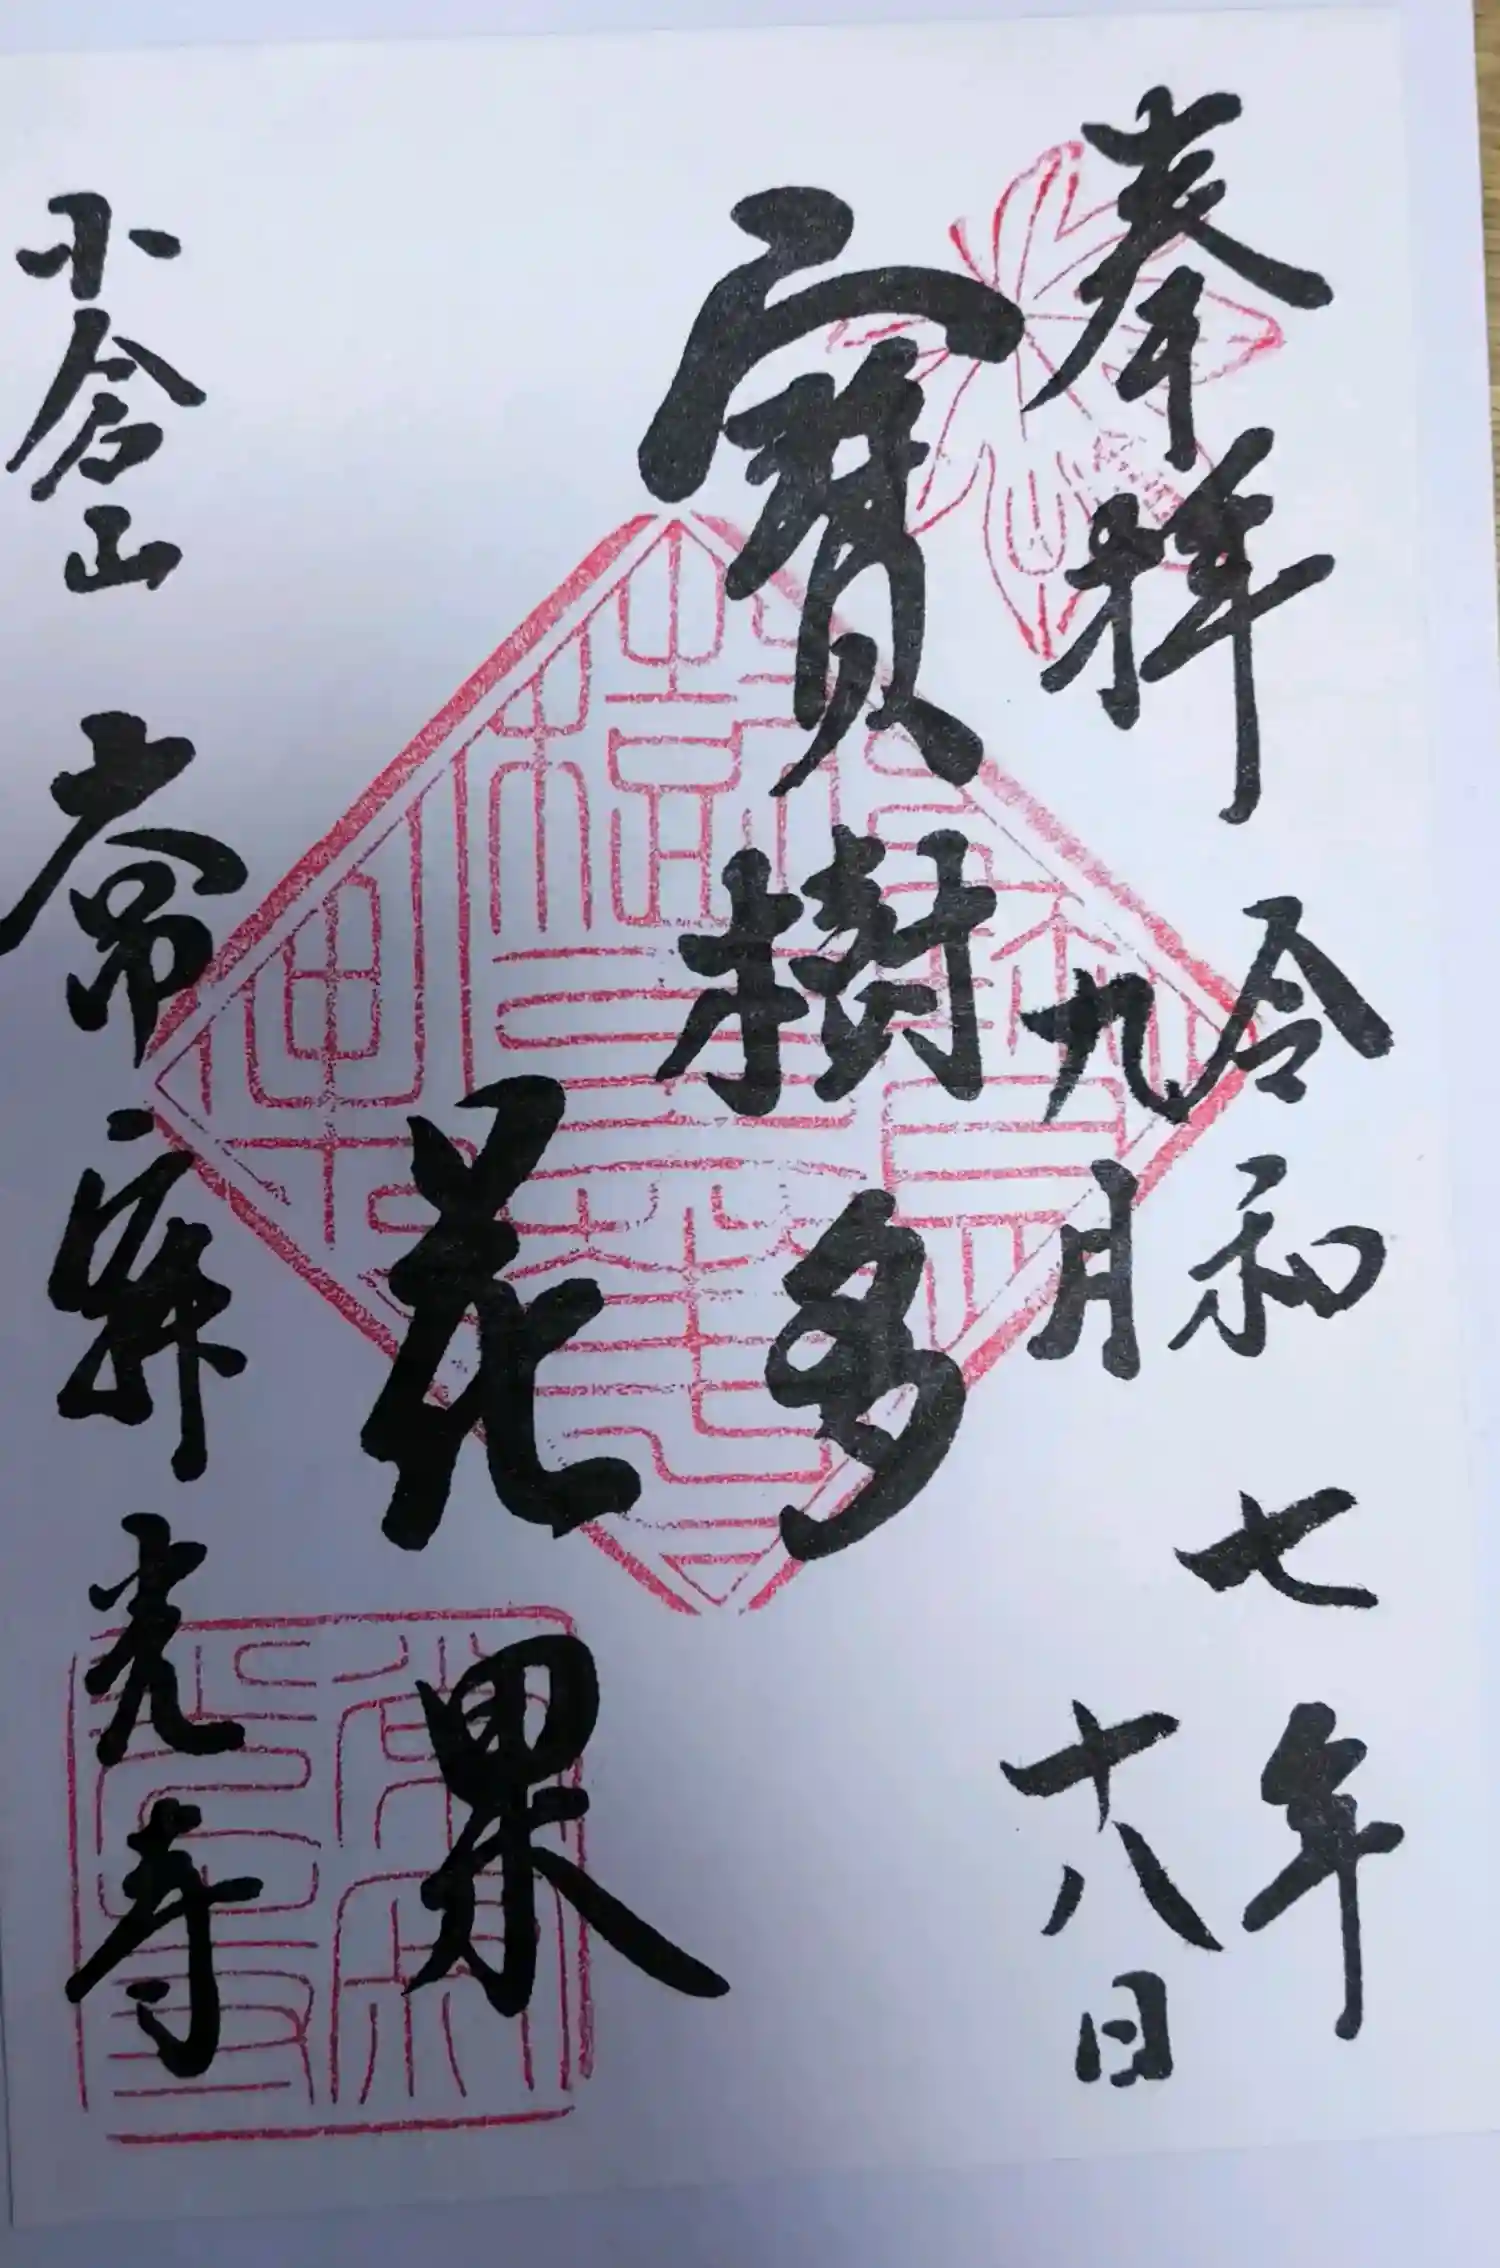 奉拝
令和七年
九月十八日
寶樹多
花果
小倉山 常寂光寺